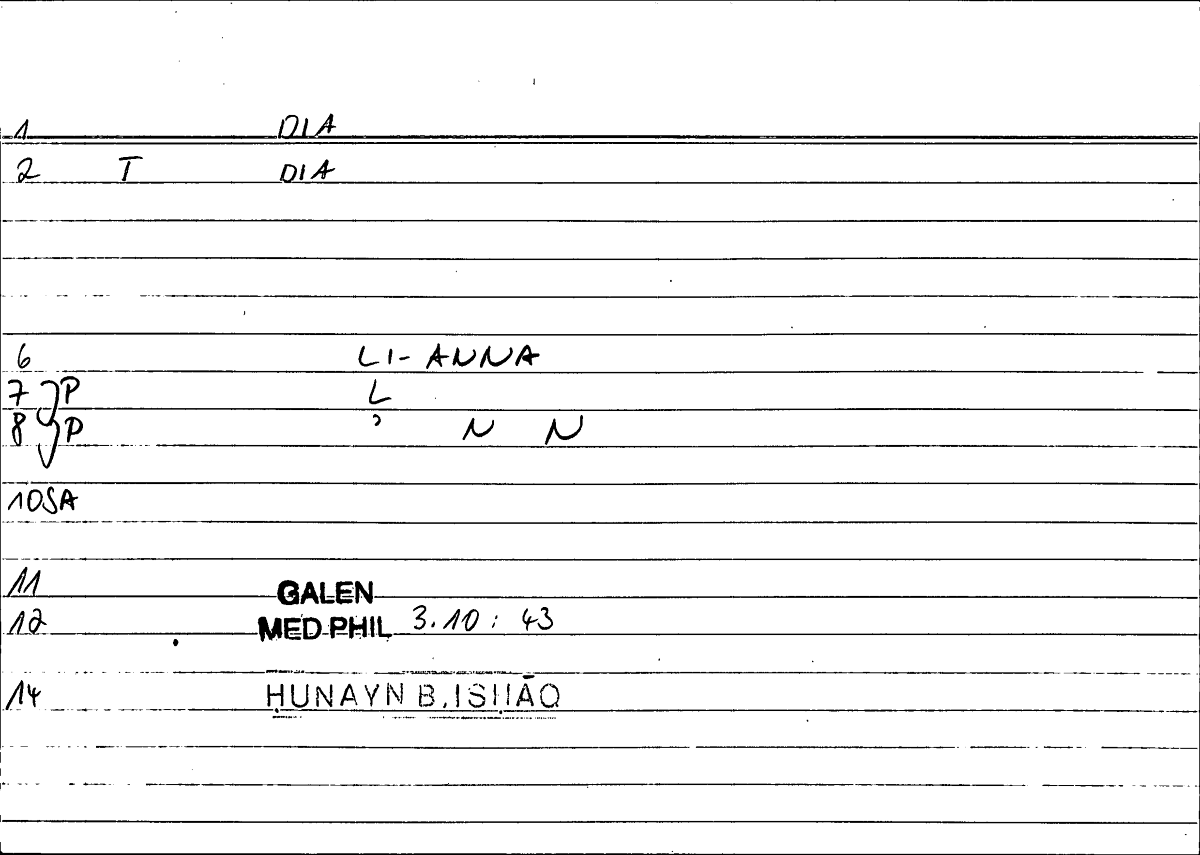 1 DIA
2 T DIA
6 LI- ANNA
7 P L
8 P ʾ N N
10 SA
11 GALEN
12 MED PHIL 3.10 : 43
14 ḤUNAYN B. ISḤĀQ